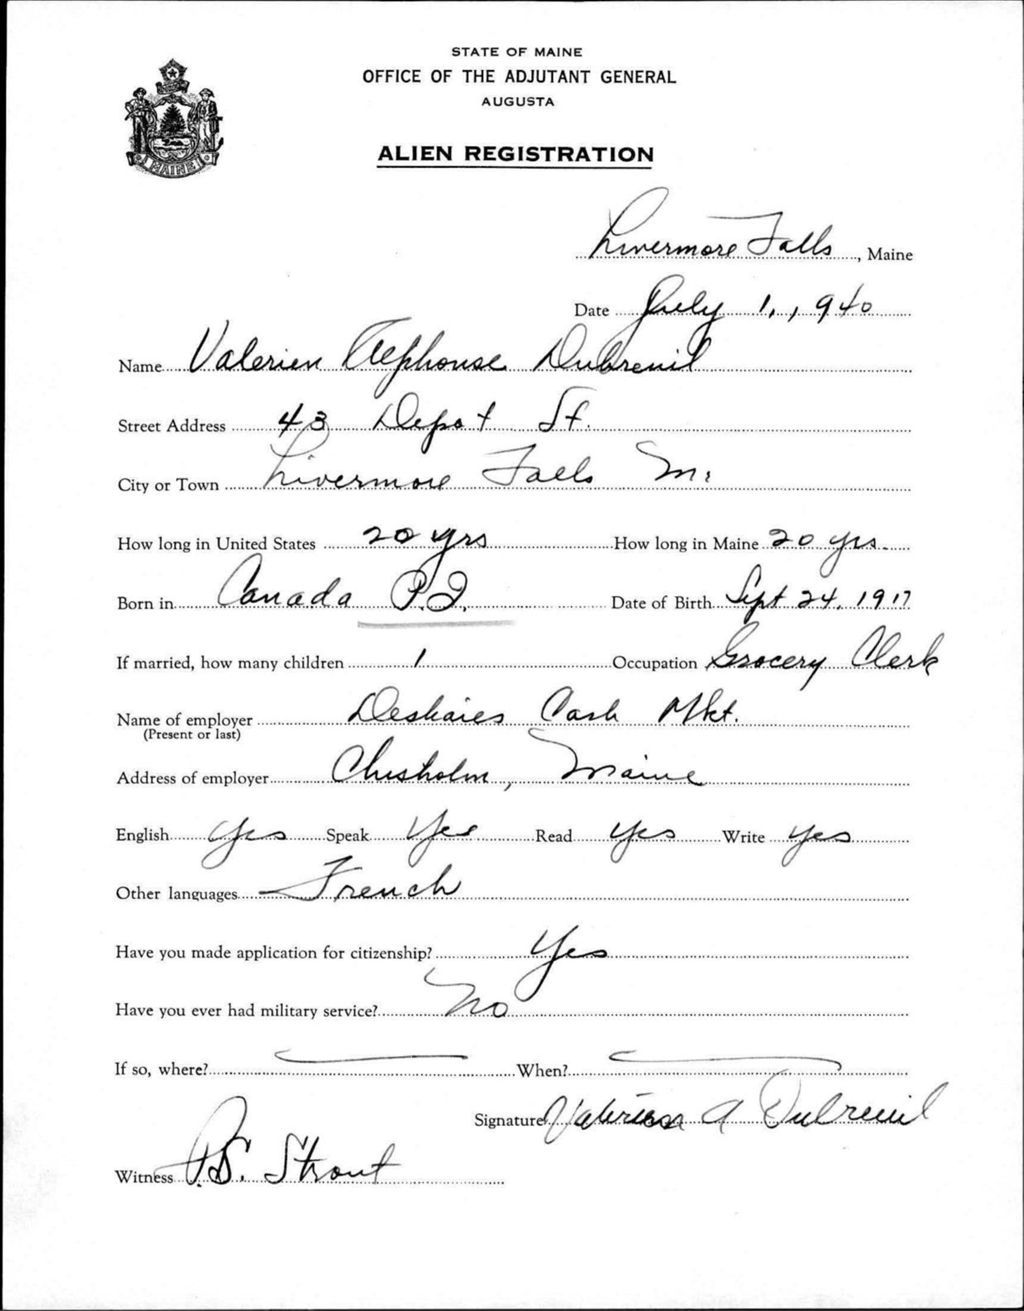 STATE OF MAINE
OFFICE OF THE ADJUTANT GENERAL
AUGUSTA
ALIEN REGISTRATION
MAINE
Livermore Falls, Maine
Date July 1, 1940
Name Valerien Alphonse Dubreuil
Street Address 43 Depot St.
City or Town Livermore Falls Me
How long in United States 20 yrs How long in Maine 20 yrs
Born in Canada P.Q. Date of Birth Sept 24, 1917
If married, how many children 1 Occupation Grocery Clerk
Name of employer Deshaies Cash Mkt.
(Present or last)
Address of employer Chisholm, Maine
English Yes Speak Yes Read Yes Write Yes
Other languages French
Have you made application for citizenship? Yes
Have you ever had military service? No
If so, where? When?
Signature Valerien A Dubreuil
Witness P.S. Strout